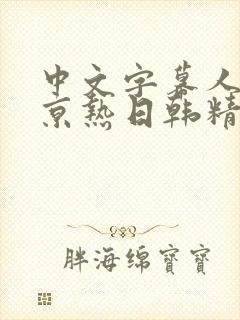 中文字幕人
京熱日韩精
胖海绵寶寶